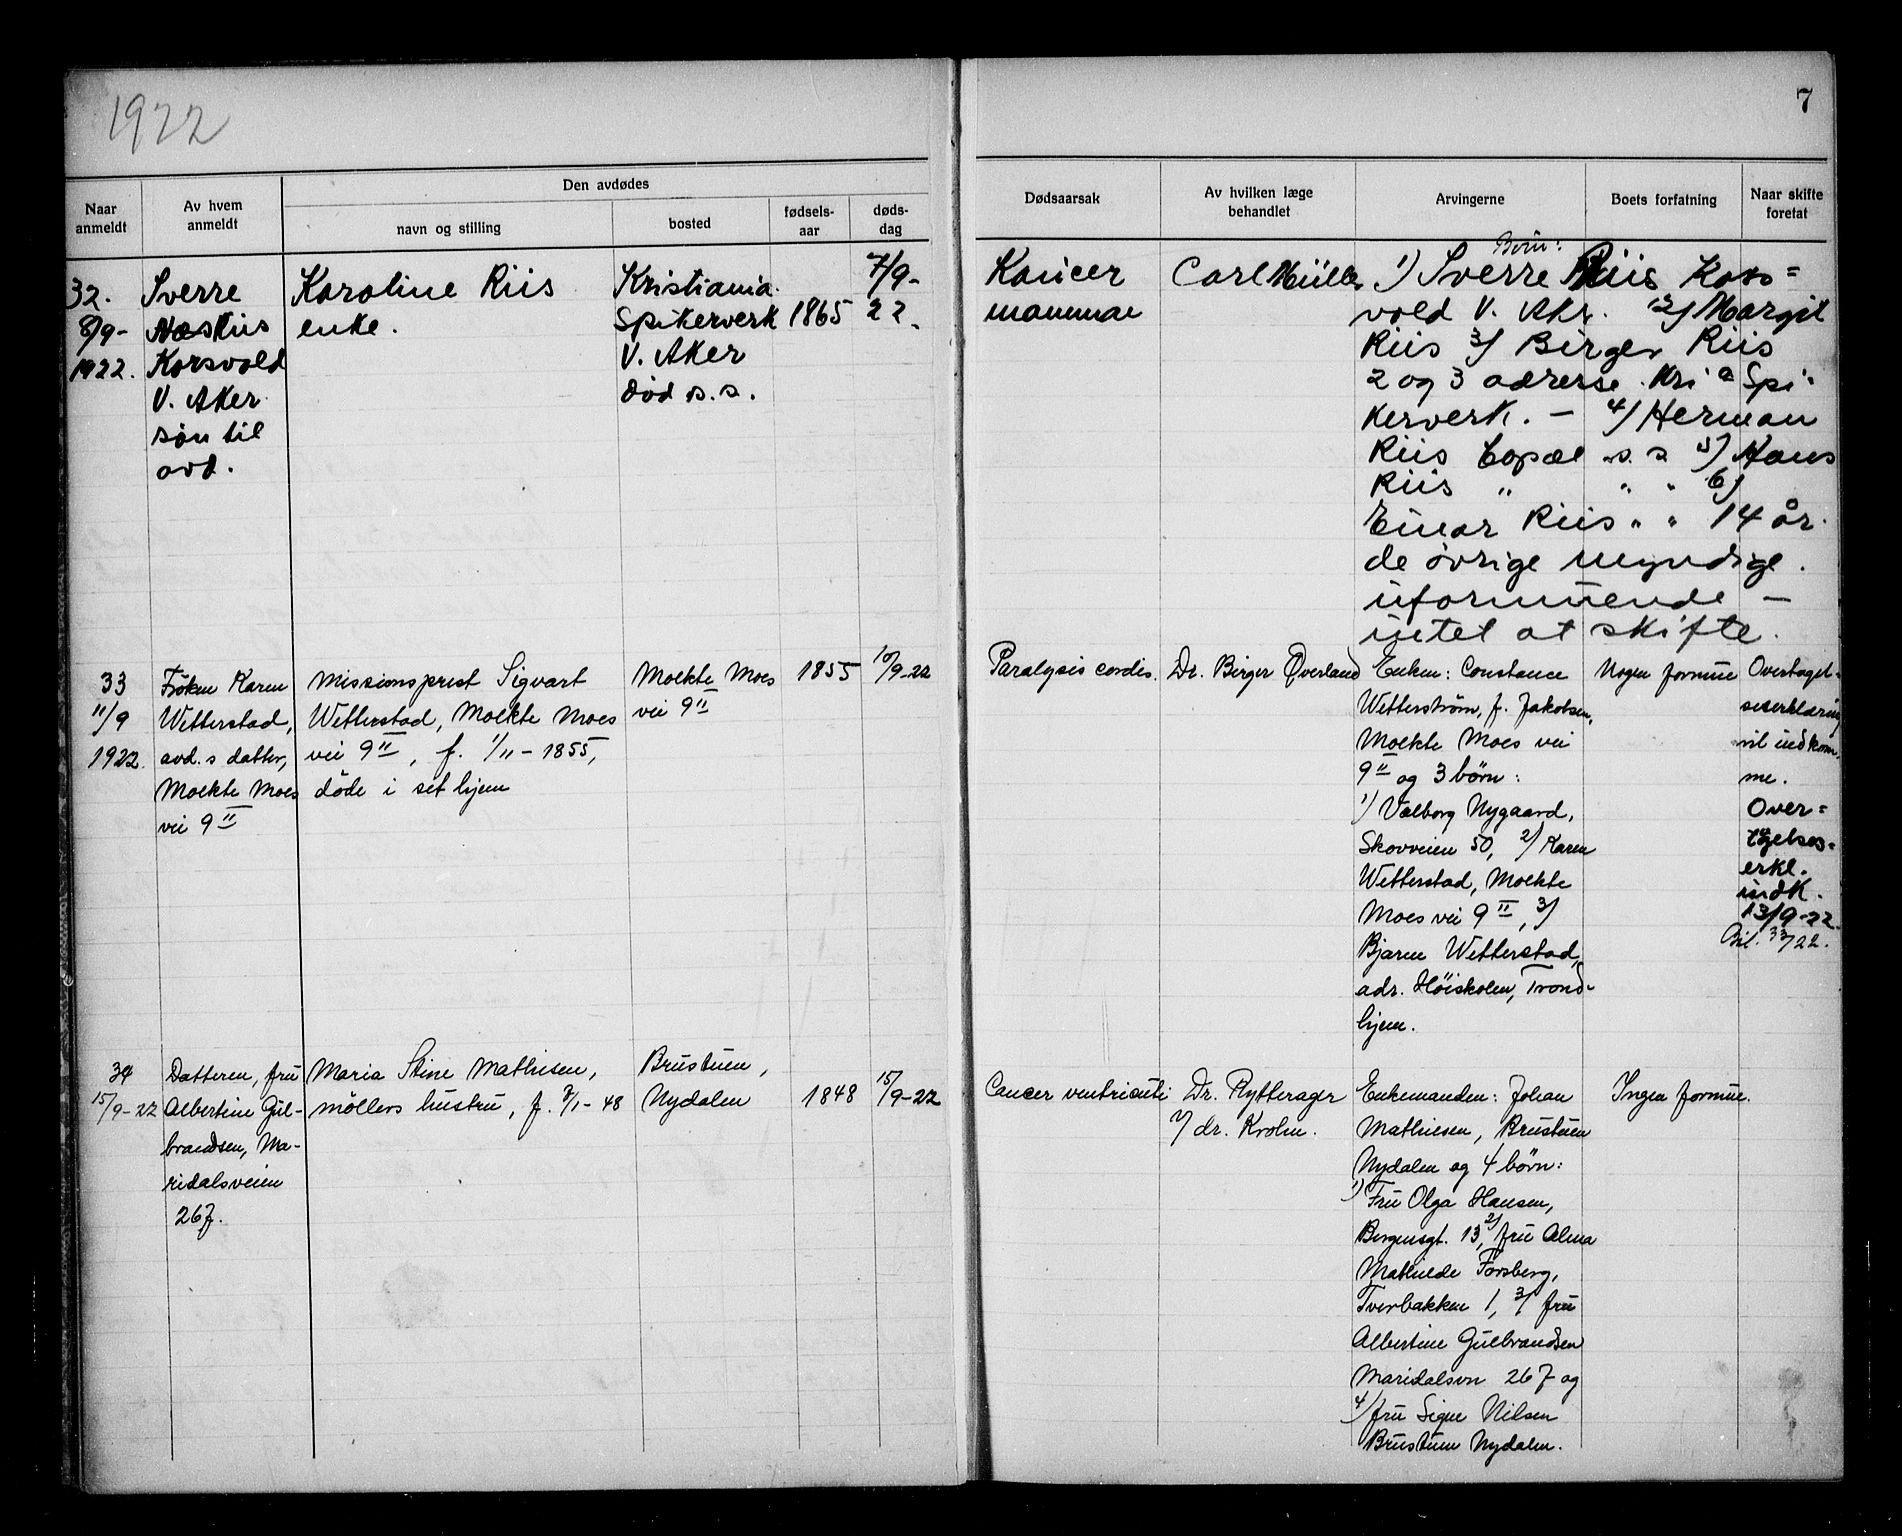 1922
7
Naar anmeldt
Av hvem anmeldt
Den avdødes
navn og stilling
bosted
fødsels-aar
døds-dag
Dødsaarsak
Av hvilken læge behandlet
Arvingerne
Boets forfatning
Naar skifte foretat
32.
8/9-
1922.
Sverre
Riis
Korsvold
V. Aker
søn til
avd.
Karoline Riis
enke.
Kristiania
Spikerverk
V. Aker
død s.s.
1865
7/9-
22.
Kancer
mammae
Carl Müller
Börn:
1) Sverre Riis Kors=
vold V. Akr. 2) Margit
Riis 3) Birger Riis
2 og 3 adresse Kri a Spi-
kerverk. - 4) Herman
Riis s. s. 5) Hans
Riis " " " 6)
Einar Riis " " 14 år.
de övrige myndige.
uformuende -
intet at skifte.
33
11/9
1922.
Frøken Karen
Wetterstad,
avd.s datter,
Moltke Moes
vei 9 II
Missionsprest Sigvart
Wetterstad, Moltke Moes
vei 9 II, f. 1/11-1855,
døde i set hjem
Moltke Moes
vei 9 II
1855
10/9-22
Paralysis cordis.
Dr. Birger Øverland
Enken: Constance
Wetterström, f. Jakobsen,
Moltke Moes vei
9 II og 3 børn:
1) Valborg Nygaard,
Skovveien 50, 2) Karen
Wetterstad, Moltke
Moes vei 9 II, 3)
Bjarne Wetterstad,
adr. Höiskolen, Trond-
hjem.
Nogen formue
Overtagel-
seserklæring
vil indkom
me.
Over=
tagelses=
erkl.
indk.
13/9-22.
Bil. 33/22.
34
15/9-22
Datteren, fru
Albertine Gul-
brandsen, Ma-
ridalsveien
267.
Maria Stine Mathisen,
møllers hustru, f. 3/1-48
Brustuen,
Nydalen
1848
15/9-22
Cancer ventriculi
Dr. Rytterager
dr. Krohn.
Enkemanden: Johan
Mathiesen, Brustuen
Nydalen og 4 börn:
1) Fru Olga Hansen,
Bergensgt. 13, 2) fru Alma
Mathilde Forsberg,
Tverbakken 1, 3) fru
Albertine Gulbrandsen
Maridalsvn 267 og
4) fru Signe Nilsen
Brustuen Nydalen.
Ingen formue.